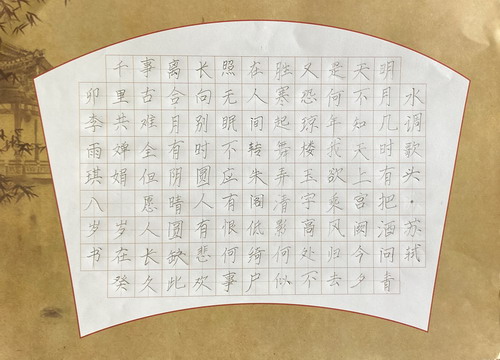 水调歌头·苏轼
明月几时有把酒问青
天不知天上宫阙今夕
是何年我欲乘风归去
又恐琼楼玉宇高处不
胜寒起舞弄清影何似
在人间转朱阁低绮户
照无眠不应有恨何事
长向别时圆人有悲欢
离合月有阴晴圆缺此
事古难全但愿人长久
千里共婵娟 岁在癸
卯李雨琪八岁书